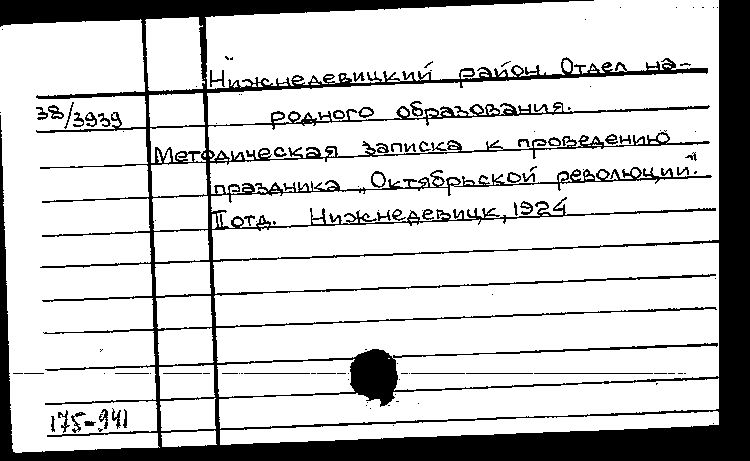 Нижнедевицкий район. Отдел на-
38/3939 родного образования.
Методическая записка к проведению
праздника „Октябрьской революции".
II отд. Нижнедевицк, 1924
175-941